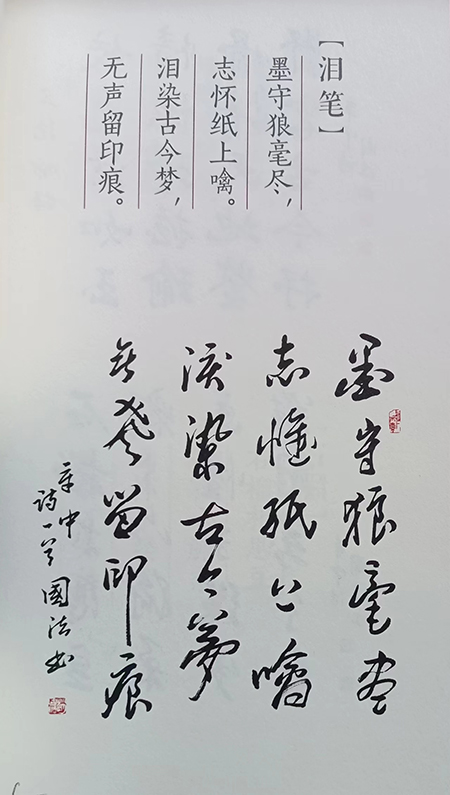 【泪笔】
墨守狼毫尽，
志怀纸上噙。
泪染古今梦，
无声留印痕。
墨守狼毫尽
志怀纸上噙
淚染古今夢
無聲留印痕
章中
诗一首國法书